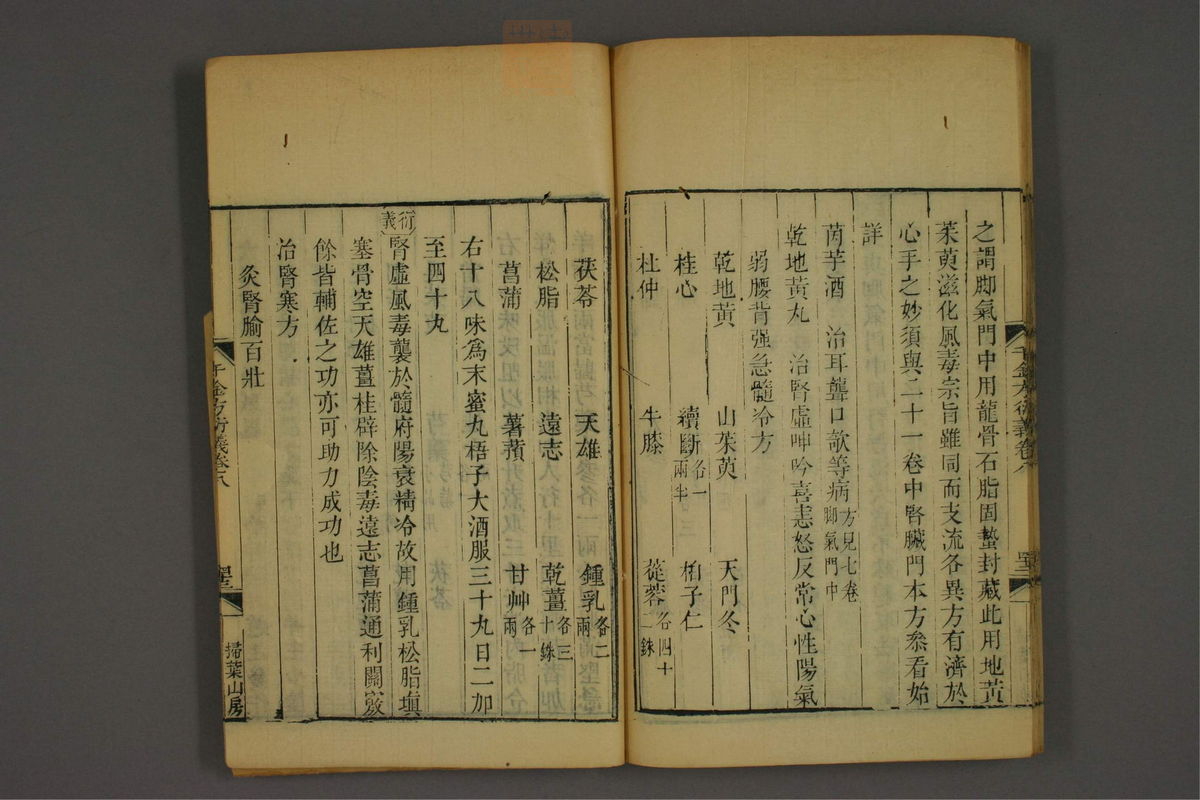 之謂脚氣門中用龍骨石脂固蟄封藏此用地黃
茱萸滋化風毒宗旨雖同而支流各異方有濟於
心手之妙須與二十一卷中腎臟門本方叅看始
詳
茵芋酒 治耳聾口欹等病方見七卷脚氣門中
乾地黃丸 治腎虛呻吟喜恚怒反常心性陽氣
弱腰背强急髓冷方
乾地黃 山茱萸 天門冬
桂心 續斷各一兩半 柏子仁
杜仲 牛膝 蓯蓉各四十二銖
千金方衍義卷八
茯苓 天雄 鍾乳各二兩
松脂 遠志 乾薑各三十銖
菖蒲 薯蕷 甘艸各一兩
右十八味爲末蜜丸梧子大酒服三十丸日二加
至四十丸
衍義 腎虛風毒襲於髓府陽衰精冷故用鍾乳松脂塡
塞骨空天雄薑桂辟除陰毒遠志菖蒲通利關竅
餘皆輔佐之功亦可助力成功也
治腎寒方
灸腎腧百壯
千金方衍義卷八
掃葉山房